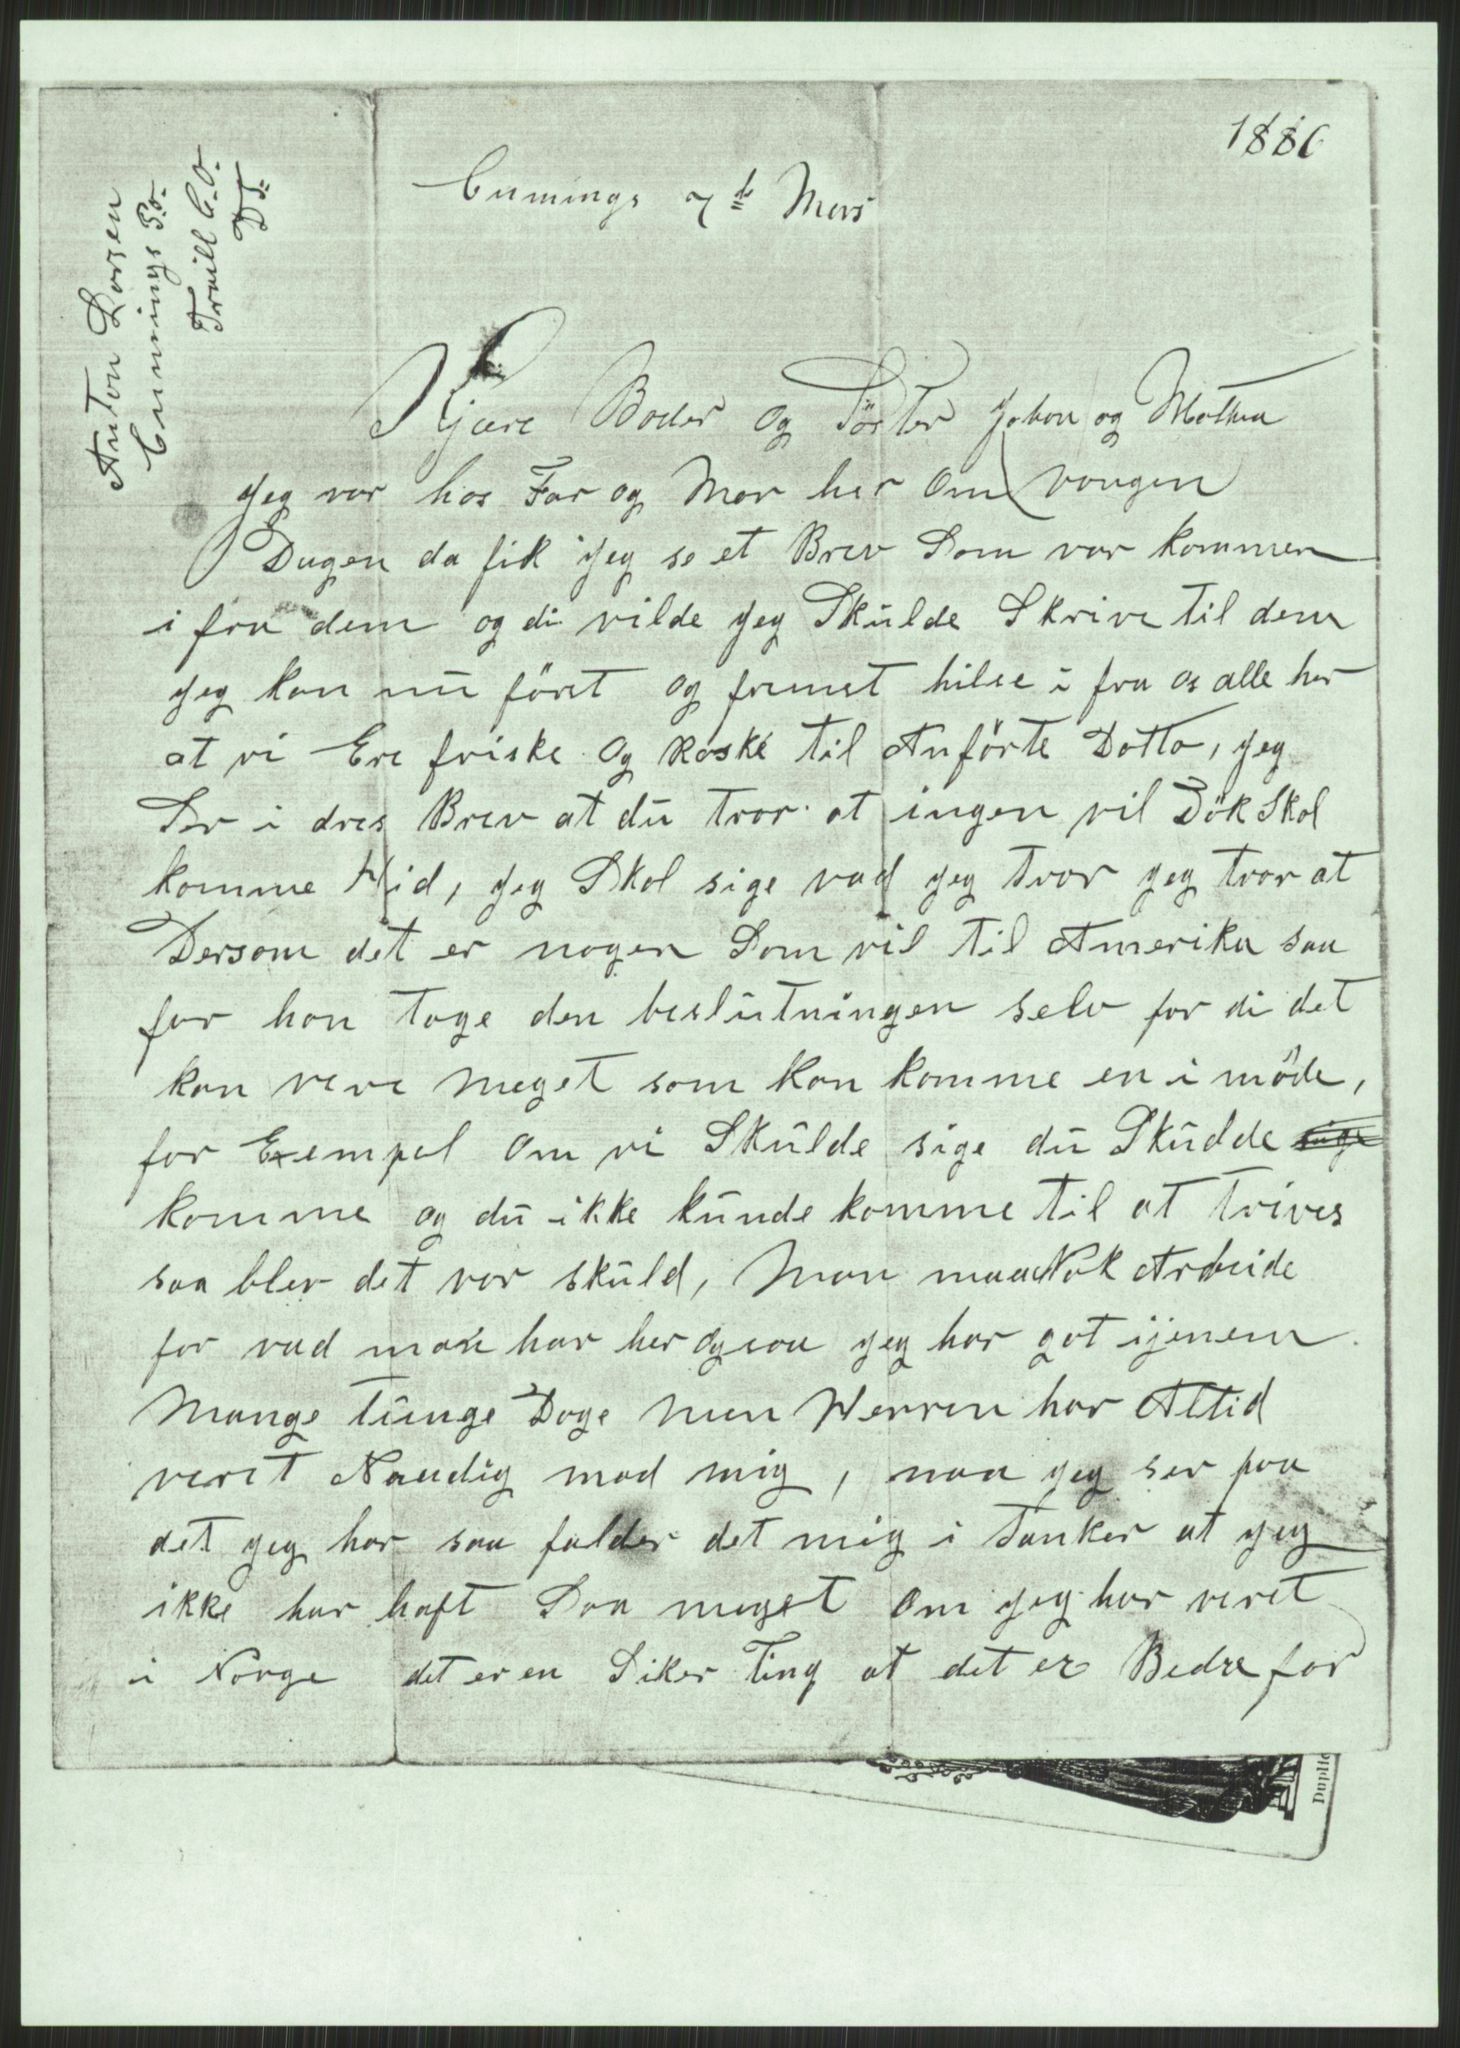 1886
Cumings 7de Mars
Anton Larsen
Cumnings P.o.
Traill C.O.
D T.
Kjære Boder og Söster Johan og Mathea
Jeg var hos Far og Mor her om vaagen
Dagen da fik jeg se et Brev Som var kommen
i fra dem og di vilde jeg Skulde Skrive til dem
jeg kan nu först og fremst hilse i fra os alle her
at vi Ere friske og Raske til Anförte Datto, jeg
Ser i dres Brev at du tror at ingen vil Dök Skal
komme Hid, jeg Skal sige vad jeg tror jeg tror at
Dersom det er nogen Som vil til Amerika saa
far han tage den beslutningen selv for di det
kan vere meget som kan komme en i möde,
for Exempel om vi Skulde sige du Skudde sige
komme og du ikke kunde komme til at trives
saa blev det vor skuld, Man maa Nok Arbeide
for vad man har her Ogsaa jeg har gat ijenem
Mange tunge Dage men Herren har Altid
veret Naadig mod mig, naa jeg ser paa
det jeg har saa falder det mig i tanker at jeg
ikke har haft Saa meget om jeg har veret
i Norge det er en Siker Ting at det er Bedre for
Duplic